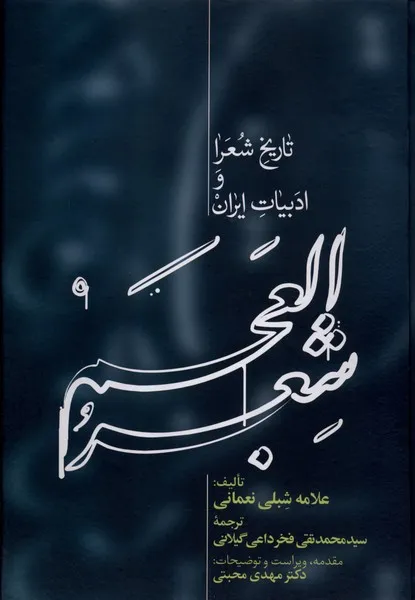 تاریخِ شُعَرا
وَ
ادَبیاتِ ایرانْ
شِعرُ العَجَم
تألیف:
علامه شِبلی نعمانی
ترجمهٔ
سیدمحمدتقی فخرداعی گیلانی
مقدمه، ویراست و توضیحات:
دکتر مهدی محبتی